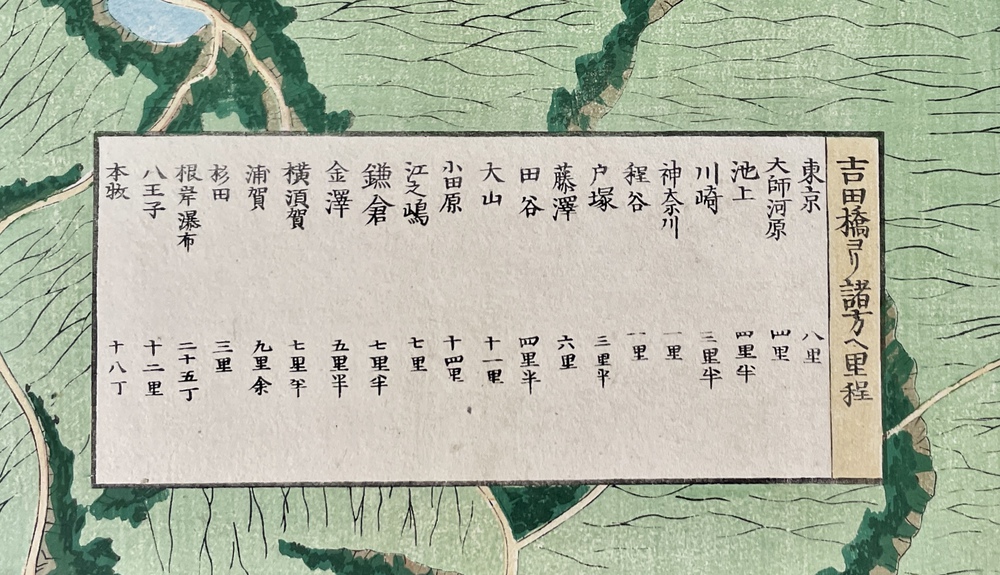 吉田橋ヨリ諸方ヘ里程
東京 八里
大師河原 四里
池上 四里半
川崎 三里半
神奈川 一里
程谷 一里
戸塚 三里半
藤澤 六里
田谷 四里半
大山 十一里
小田原 十四里
江之嶋 七里
鎌倉 七里半
金澤 五里半
横須賀 七里半
浦賀 九里余
杉田 三里
根岸瀑布 二十五丁
八王子 十二里
本牧 十八丁